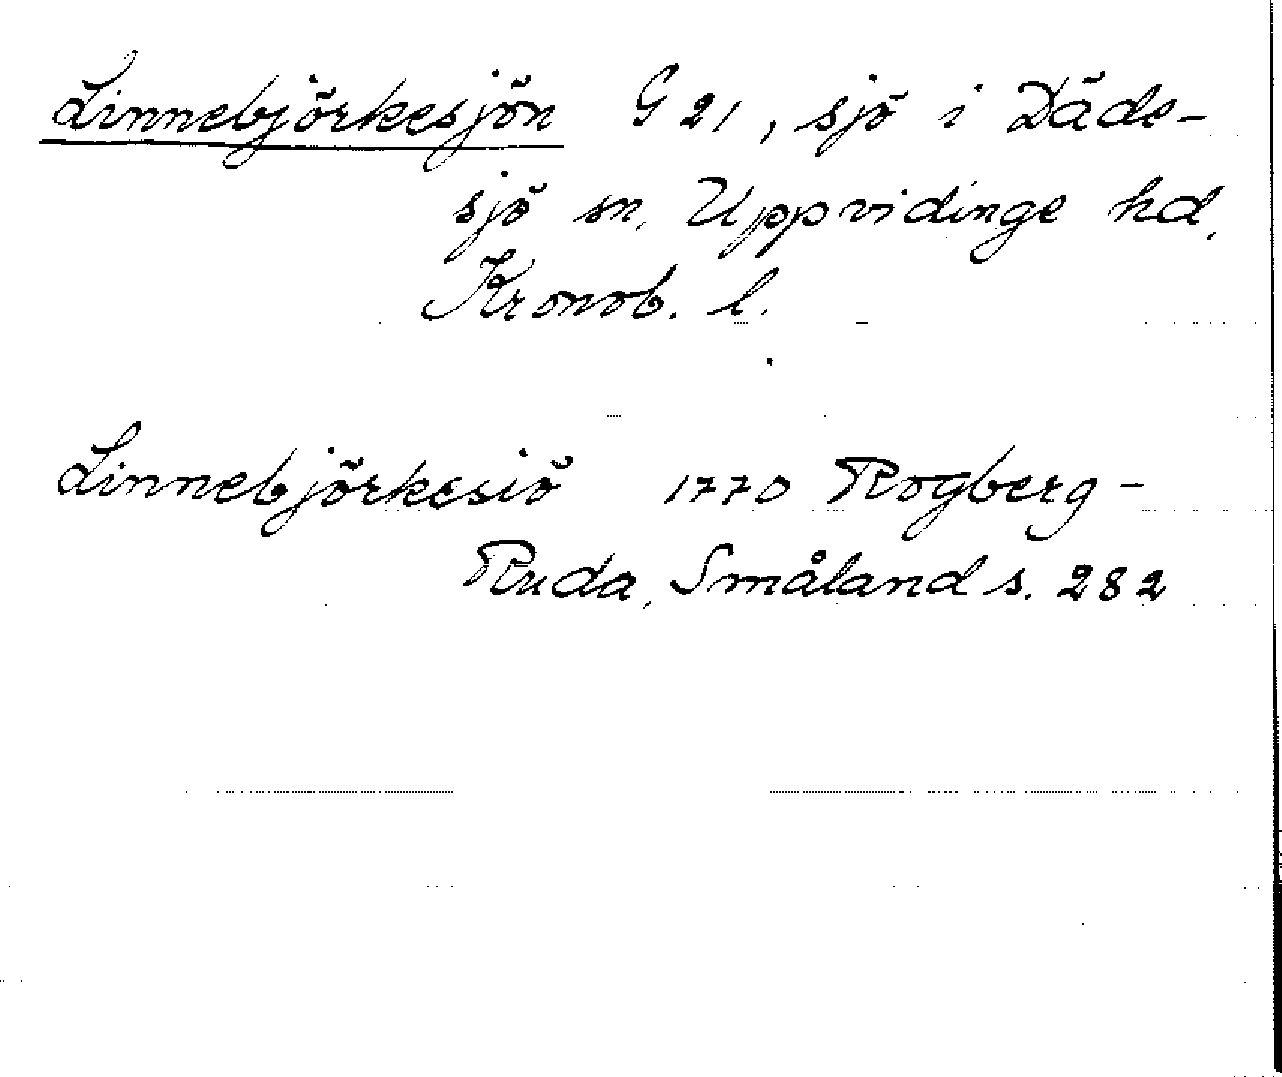 Linnebjörkesjön G 21, sjö i Däde-
sjö sn, Uppvidinge hd,
Kronob. l.
Linnebjörkesiö 1770 Rogberg-
Ruda, Småland s. 282